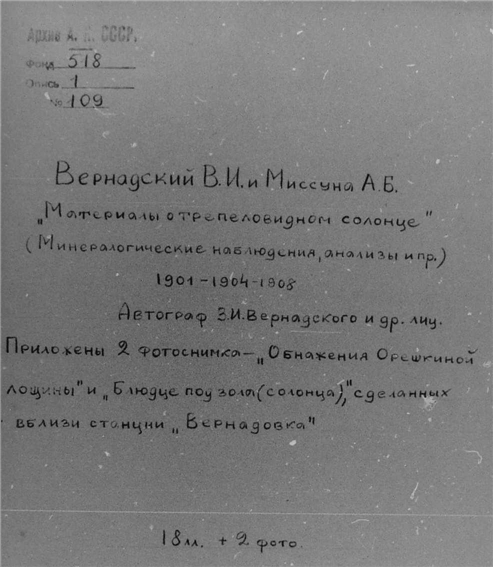 Архив А. Н. СССР.
Фонд 518
Опись 1
№ 109
Вернадский В.И. и Миссуна А.Б.
„Материалы о трепеловидном солонце"
(Минералогические наблюдения, анализы и пр.)
1901-1904-1908
Автограф В.И. Вернадского и др. лиц.
Приложены 2 фотоснимка — „Обнажения Орешкиной
лощины" и „Блюдце подзола (солонца)," сделанных
вблизи станции „Вернадовка"
18 лл. + 2 фото.